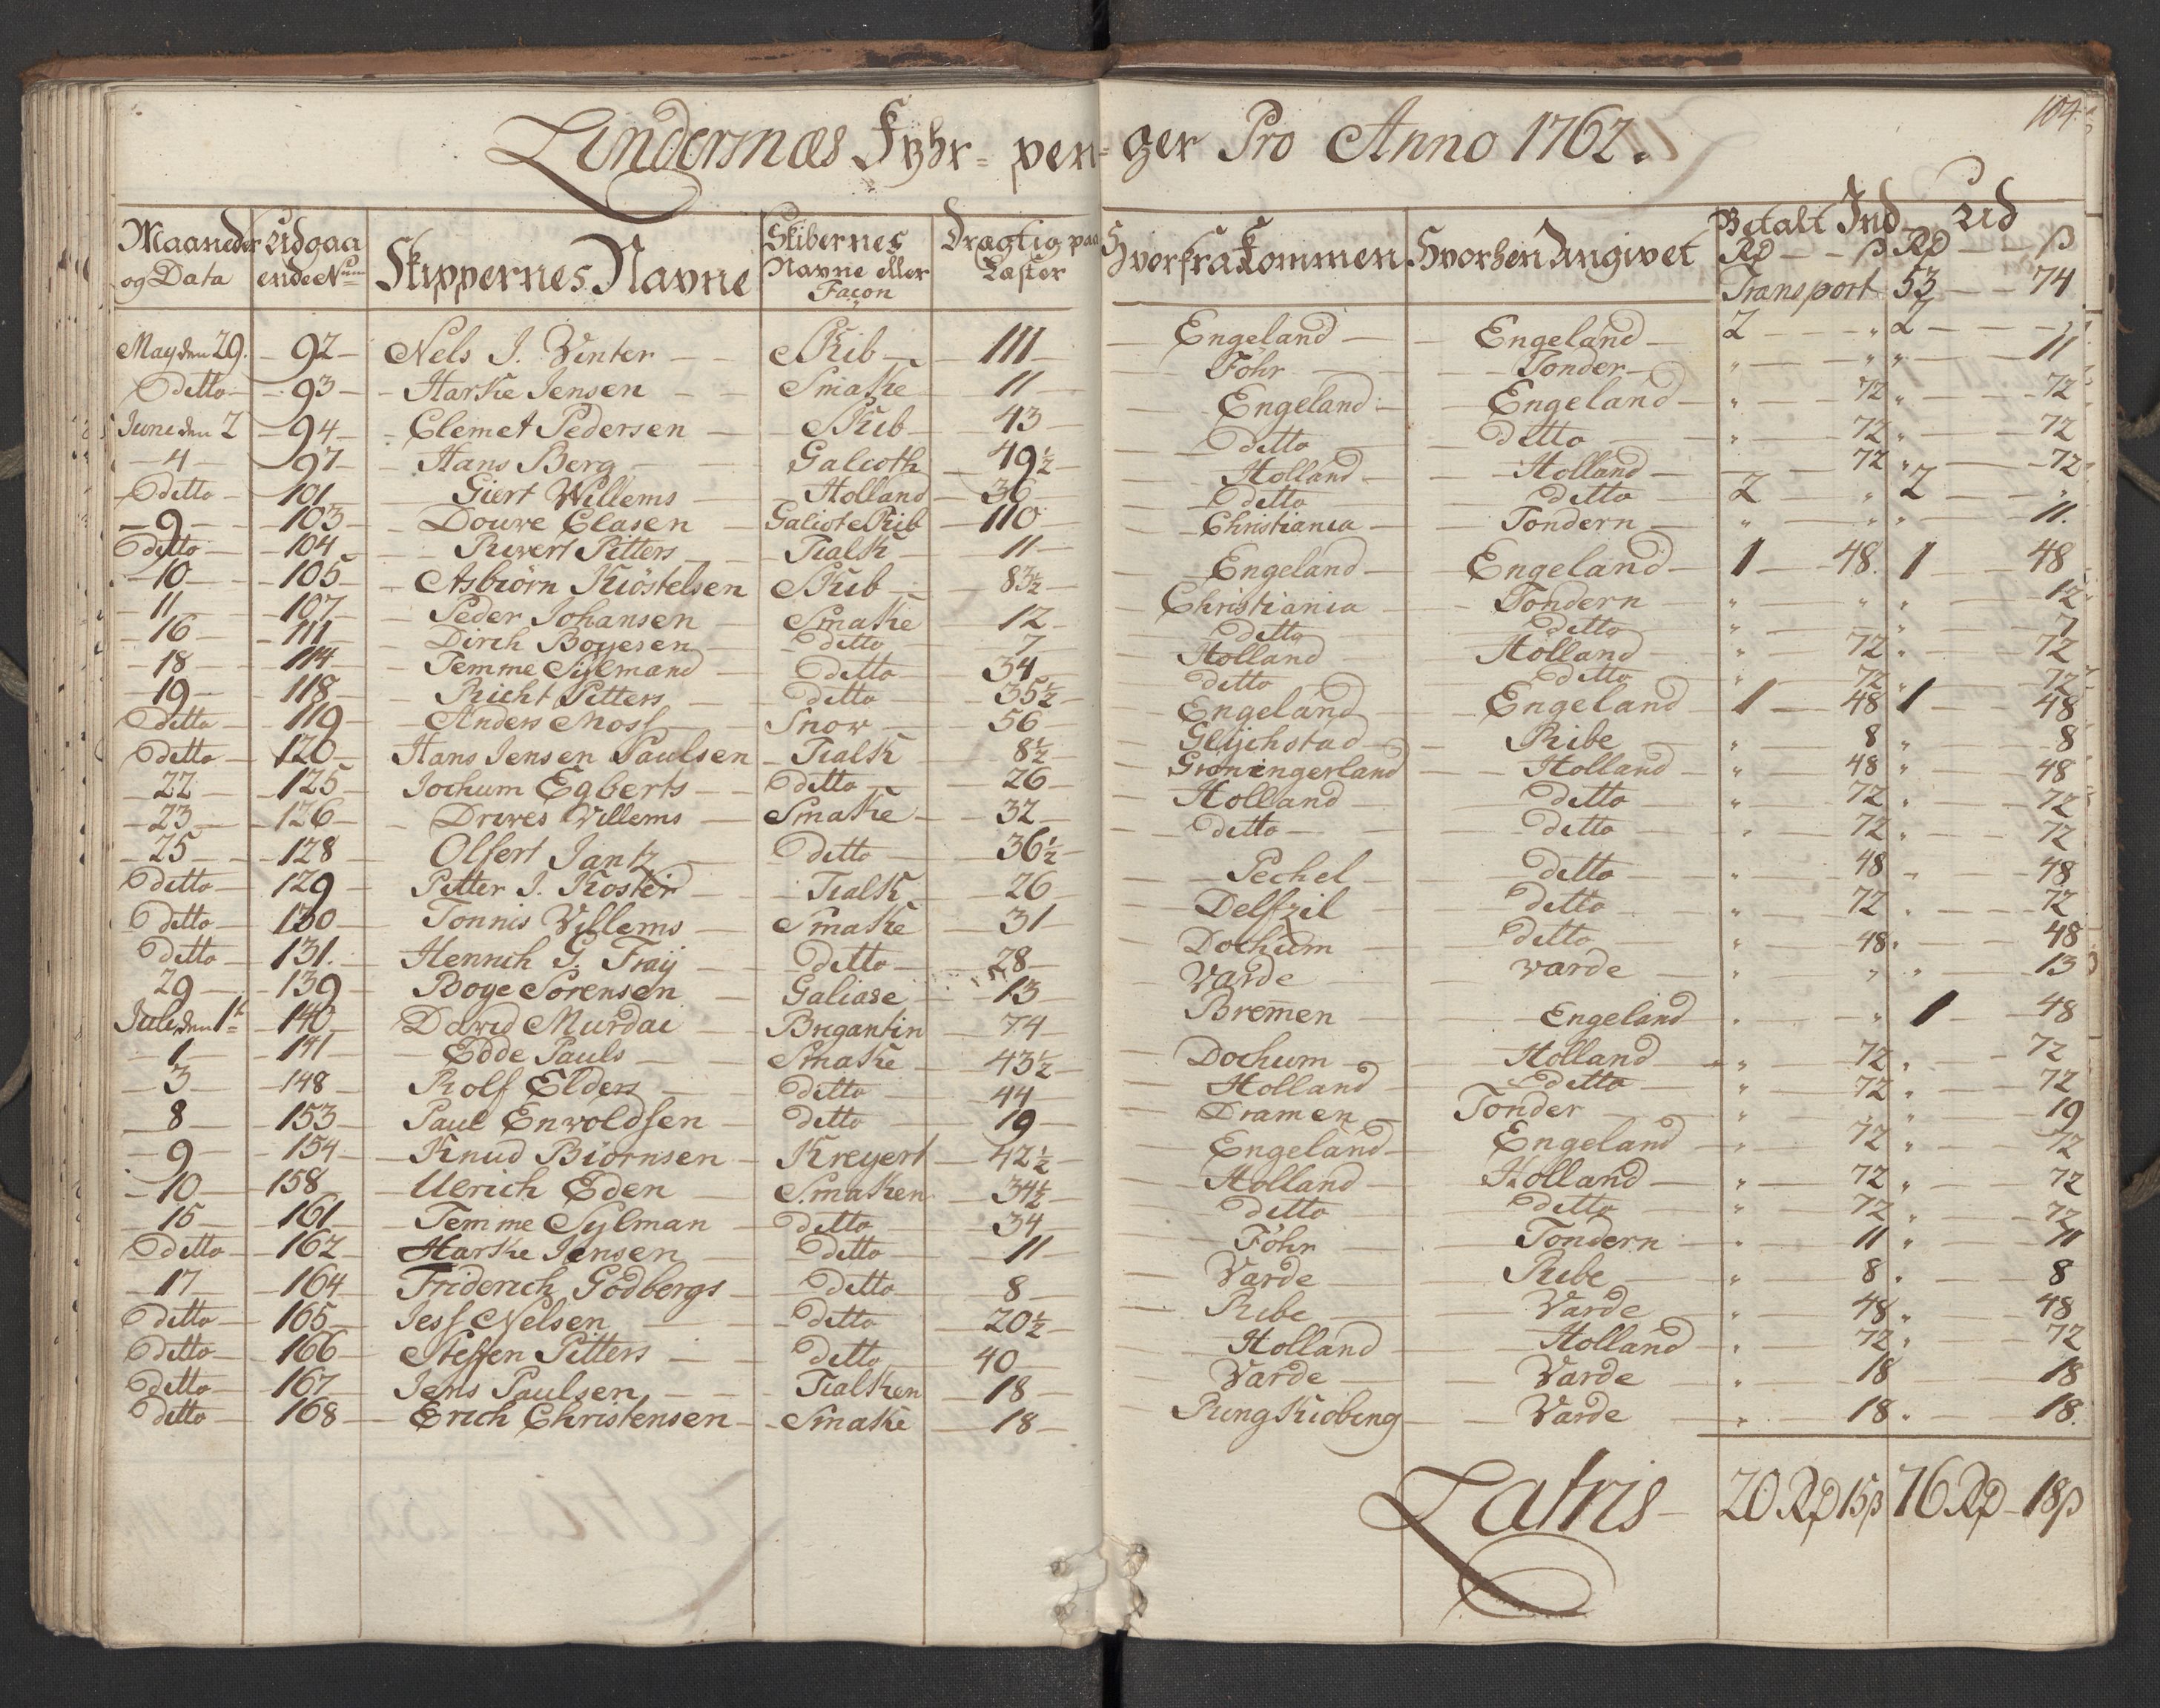 104.
Lindersnæs Fyhr-pen-ger Pro Anno 1762.
Maaneder og Data | Udgaaende Num | Skippernes Navne | Skibernes Navne eller Façon | Dragtig paa Læster | Hvorfra Kommen | Hvorhen Angivet | Betalt Ind Rd ß | Ud Rd ß
Transport 53 74
May den 29. 92 Nels J. Winter Skib 111 Engeland Engeland 2 " 2 "
Ditto 93 Harke Jensen Smakke 11 Föhr Tonder " " " 11
June den 2 94 Clemet Pedersen Skib 43 Engeland Engeland " 72 " 72
4 97 Hans Berg Galioth 49½ Ditto Ditto " 72 " 72
Ditto 101 Giert Willems Holland 36 Holland Holland 72 " 72
9 103 Douwe Clasen Galiot Skib 110 Ditto Ditto 2 " 2 "
Ditto 104 Riwert Pitters Tialk 11 Christiania Tondern " " " 11.
10 105 Asbiörn Kiöstelsen Skib 83½ Engeland Engeland 1 48. 1 48
11 107 Peder Johansen Smake 12 Christiania Tondern " " " 12
16 111 Dirch Boyesen ditto 7 Ditto Ditto " " " 7
18 114 Temme Sylmand Ditto 34 Holland Holland " 72 " 72
19 118 Richt Pitters ditto 35½ Ditto Ditto " 72 " 72
Ditto 119 Anders Moss Snow 56 Engeland Engeland 1 48 1 48
Ditto 120 Hans Jensen Paulsen Tialk 8½ Glychstad Ribe " 8 " 8
22 125 Jochum Egberts Ditto 26 Gröningerland Holland " 48 " 48
23 126 Drives Willems Smake 32 Holland Ditto " 72 " 72
25 128 Olfert Jantz Ditto 36½ Ditto Ditto " 72 " 72
Ditto 129 Pitter J. Koster Tialk 26 Pechel Ditto " 48 " 48
Ditto 130 Tonnis Villems Smake 31 Delfzil Ditto " 72 " 72
Ditto 131. Henrich G. Fraij Ditto 28 Dochum Ditto " 48 " 48
29 139 Boye Sörensen Galiase 13 Varde varde " " " 13
Juli den 1t 140 David Murdai Brigantin 74 Bremen Engeland " " 1 48
1 141 Edde Pauls Smake 43½ Dochum Holland " 72 " 72
3 148 Rolf Elders Ditto 44 Holland Ditto " 72 " 72
8 153 Paul Enwoldsen Ditto 19 Dramen Tonder " " " 19
9 154 Knud Biörnsen Kreyert 42½ Engeland Engeland " 72 " 72
10 158 Ulrich Eden Smaken 34½ Holland Holland " 72 " 72
15 161 Temme Sylman Ditto 34 Ditto Ditto " 72 " 72
Ditto 162 Harke Jensen Ditto 11 Föhr Tondern " 11 " 11
17 164 Friderich Godbergs Ditto 8 Varde Ribe " 8 " 8
Ditto 165 Jess Nelsen Ditto 20½ Ribe Varde " 48 " 48
Ditto 166 Steffen Pitters Ditto 40 Holland Holland " 72 " 72
Ditto 167 Jens Paulsen Tialken 18 Varde Varde " 18 18
Ditto 168 Erich Christensen Smake 18 Ring Kiobing Varde " 18 " 18.
Latris 20 Rd 15ß 76 Rd 18ß